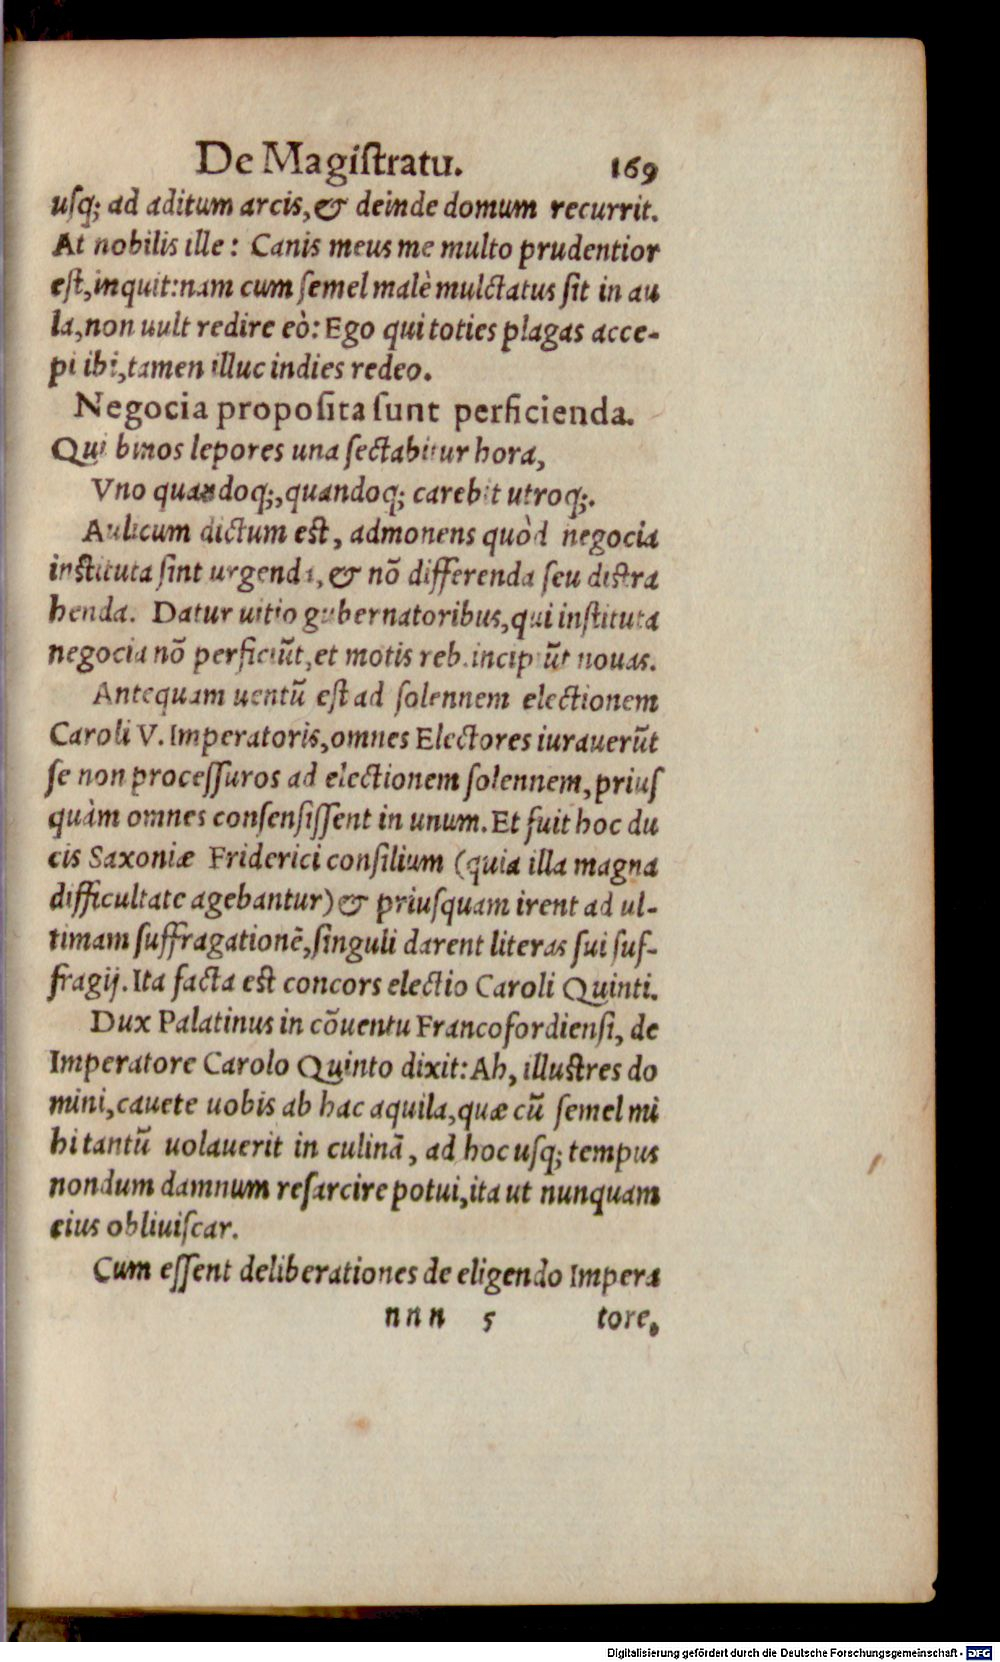 De Magiſtratu. 169
uſq; ad aditum arcis, & deinde domum recurrit.
At nobilis ille: Canis meus me multo prudentior
eſt, inquit: nam cum ſemel malè mulctatus ſit in au
la, non uult redire eò: Ego qui toties plagas acce-
pi ibi, tamen illuc indies redeo.
Negocia propoſita ſunt perficienda.
Qui binos lepores una ſectabitur hora,
Vno quandoq;, quandoq; carebit utroq;.
Aulicum dictum eſt, admonens quòd negocia
inſtituta ſint urgenda, & nõ differenda ſeu diſtra
henda. Datur uitio gubernatoribus, qui inſtituta
negocia nõ perficiũt, et motis reb. incipiũt nouas.
Antequam uentũ eſt ad ſolennem electionem
Caroli V. Imperatoris, omnes Electores iurauerũt
ſe non proceſſuros ad electionem ſolennem, priuſ
quàm omnes conſenſiſſent in unum. Et fuit hoc du
cis Saxoniæ Friderici conſilium (quia illa magna
difficultate agebantur) & priuſquam irent ad ul-
timam ſuffragationẽ, ſinguli darent literas ſui ſuf-
fragij. Ita facta eſt concors electio Caroli Quinti.
Dux Palatinus in cõuentu Francofordienſi, de
Imperatore Carolo Quinto dixit: Ah, illuſtres do
mini, cauete uobis ab hac aquila, quæ cũ ſemel mi
hi tantũ uolauerit in culinã, ad hoc uſq; tempus
nondum damnum reſarcire potui, ita ut nunquam
eius obliuiſcar.
Cum eſſent deliberationes de eligendo Impera
nnn 5 tore,
Digitalisierung gefördert durch die Deutsche Forschungsgemeinschaft - DFG